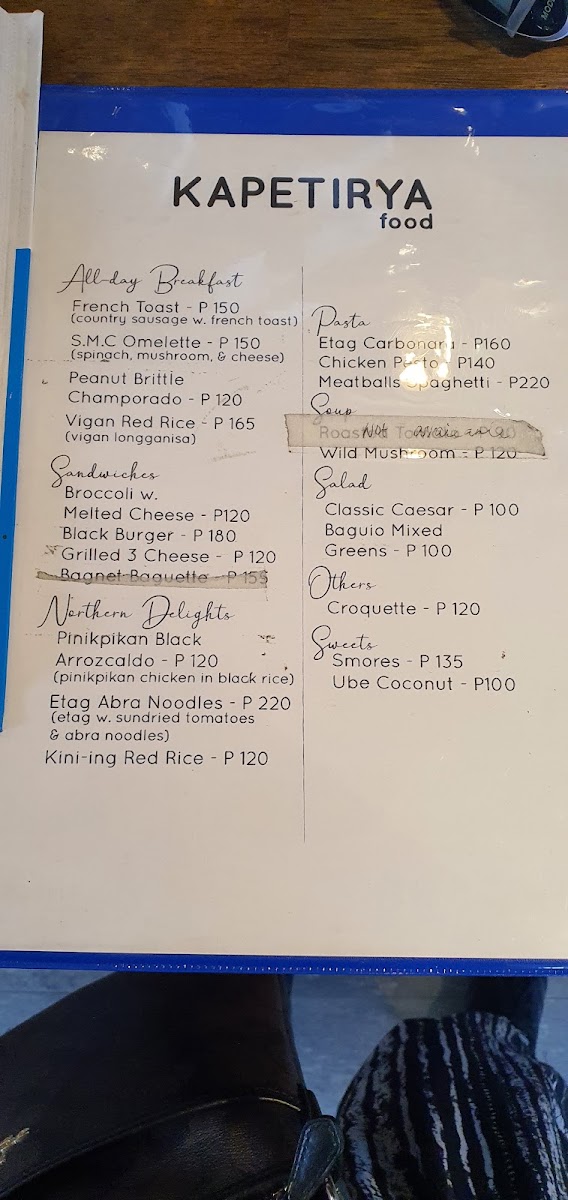 KAPETIRYA
food
All-day Breakfast
French Toast - P 150
(country sausage w. french toast)
S.M.C Omelette - P 150
(spinach, mushroom, & cheese)
Peanut Brittle
Champorado - P 120
Vigan Red Rice - P 165
(vigan longganisa)
Sandwiches
Broccoli w.
Melted Cheese - P120
Black Burger - P 180
Grilled 3 Cheese - P 120
Bagnet Baguette - P 155
Northern Delights
Pinikpikan Black
Arrozcaldo - P 120
(pinikpikan chicken in black rice)
Etag Abra Noodles - P 220
(etag w. sundried tomatoes
& abra noodles)
Kini-ing Red Rice - P 120
Pasta
Etag Carbonara - P160
Chicken Pesto - P140
Meatballs Spaghetti - P220
Soup
Not available
Wild Mushroom - P 120
Salad
Classic Caesar - P 100
Baguio Mixed
Greens - P 100
Others
Croquette - P 120
Sweets
Smores - P 135
Ube Coconut - P100